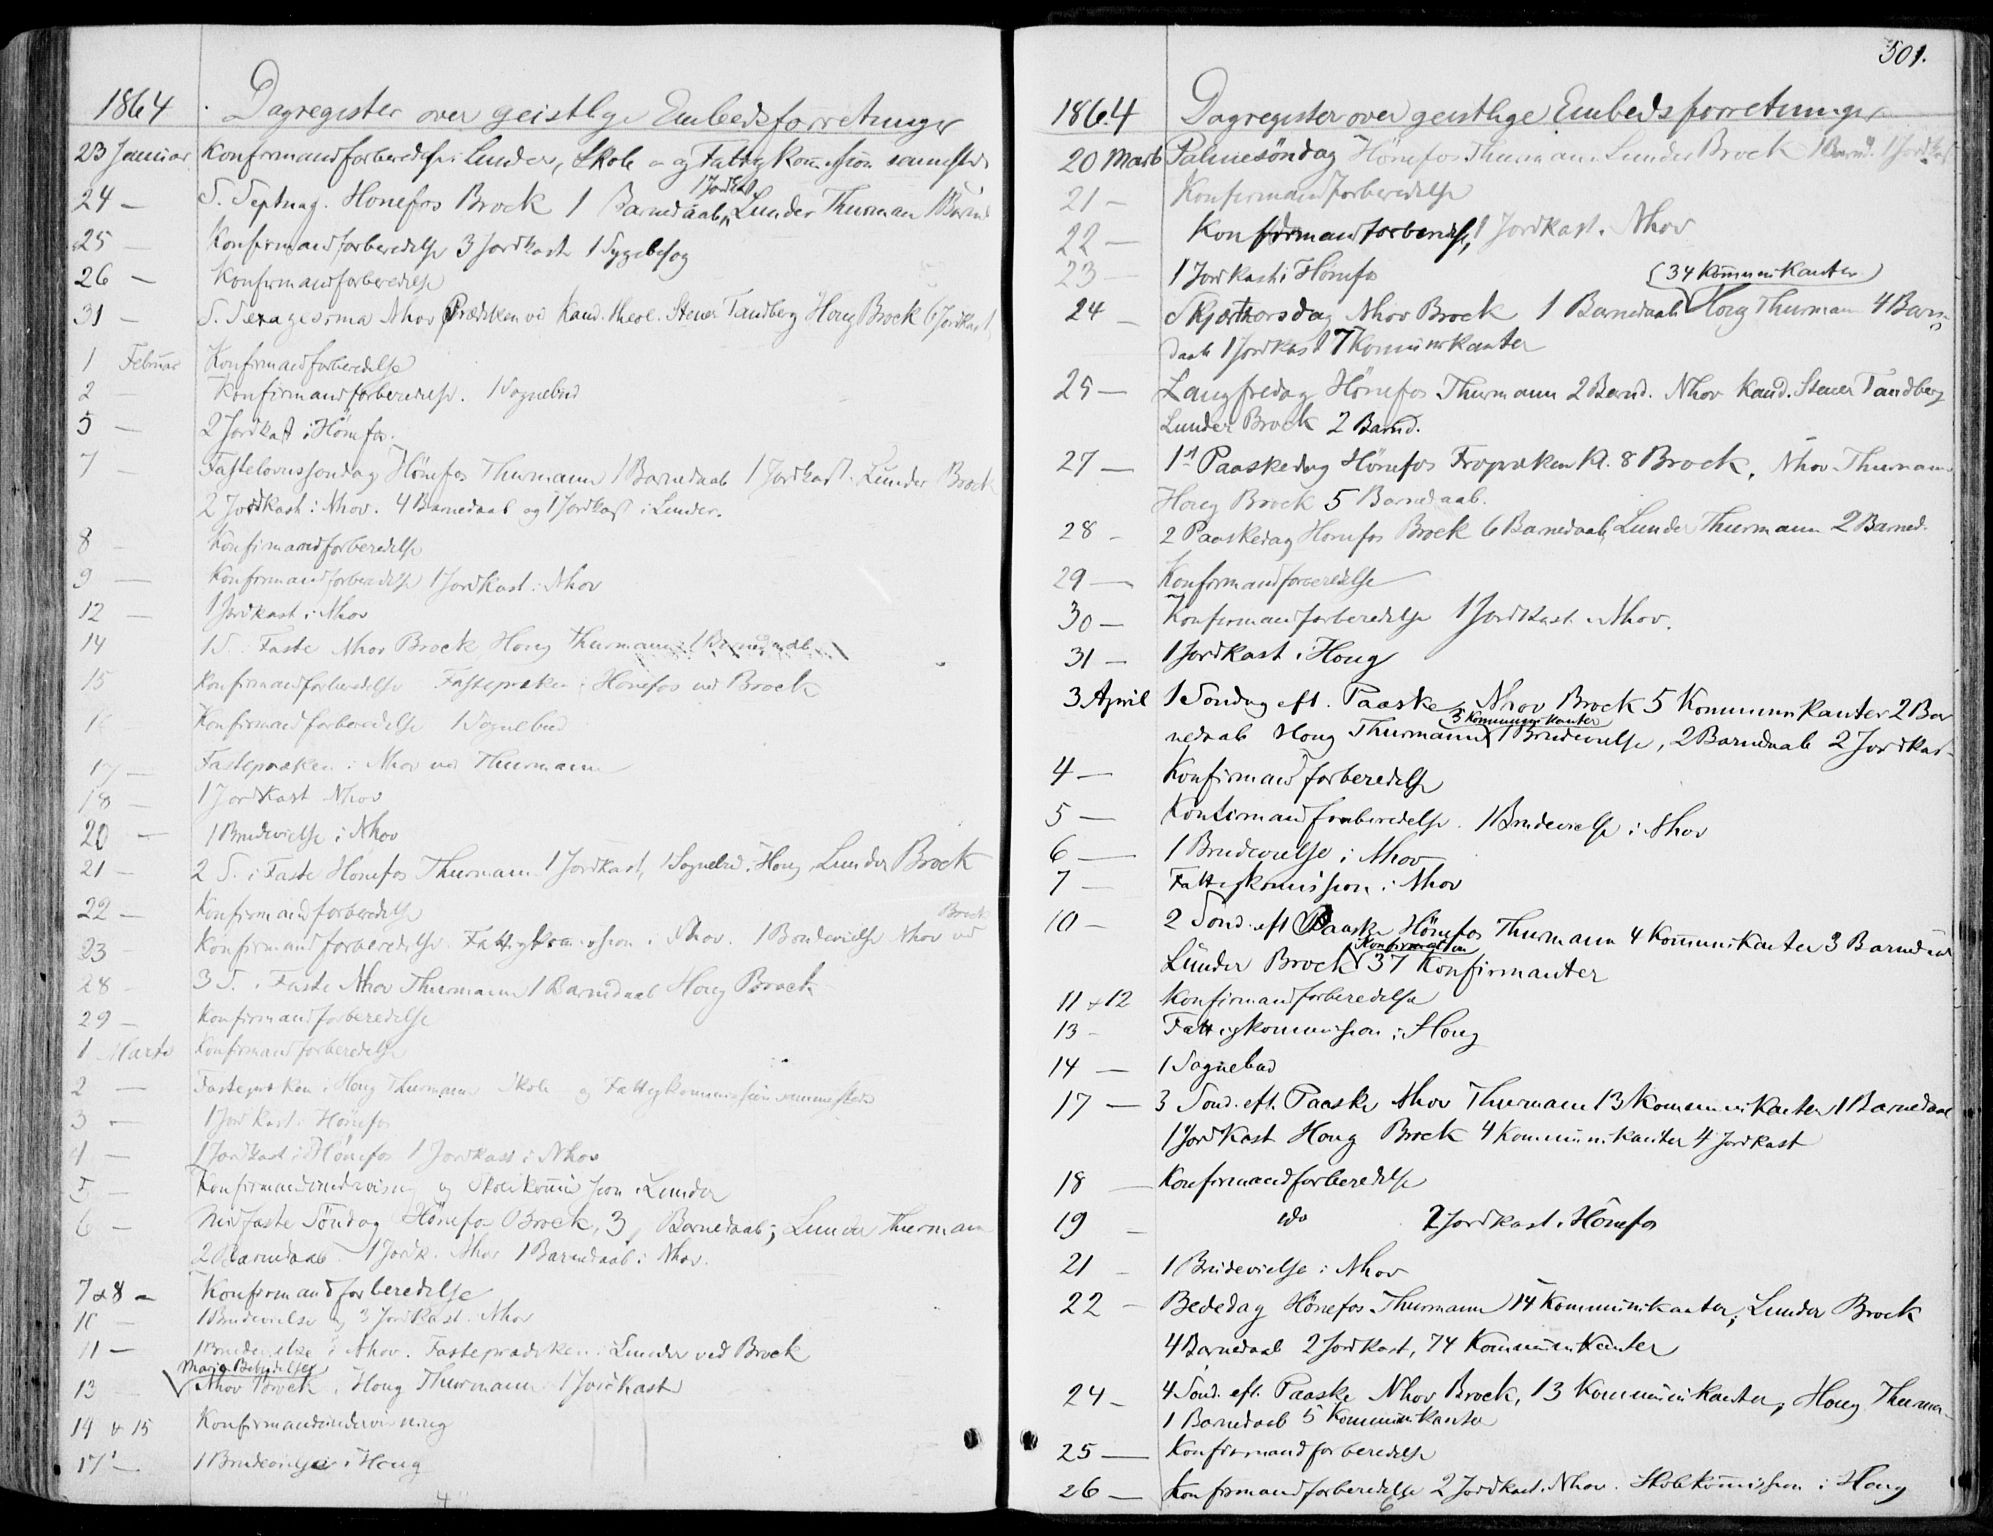 1864 . Dagregister over geistlige Embedsforretninger
23 Januar Konfirmandforberedelse i Lunder, Skole- og Fattigkom̄ission sammesteds
1 Jordkast
24 — S. Septuag. Hønefos Brock 1 Barnedaab, Lunder Thurman 1 Barned
25 — Konfirmandforberedelse 3 Jordkast 1 Sygebesøg
26 — Konfirmandforberedelse
31 — S. Sexagesima Nhov Prædiken ved Kand. theol. Stener Tandberg Houg Brock 6 Jordkast
1 Februar Konfirmandforberedelse
2 — Konfirmandforberedelse. 1 Sognebud
5 — 2 Jordkast i Hönefos.
7 — Fastelovnssöndag Hönefos Thurmann 1 Barnedaab 1 Jordkast. Lunder Brock
2 Jordkast i Nhov. 4 Barnedaab og 1 Jordkast i Lunder.
8 — Konfirmandforberedelse
9 — Konfirmandforberedelse 1 Jordkast i Nhov
12 — 1 Jordkast i Nhov
14 1 S. i Faste Nhov Brock Houg Thurmann 1 Barnedaab
15 Konfirmandforberedelse Fastepræken i Hönefos ved Brock
16 Konfirmandforberedelse 1 Sognebud
17 — Fastepræken i Nhov ved Thurmann
18 — 1 Jordkast Nhov
20 — 1 Brudevielse i Nhov
21 — 2 S. i Faste Hönefos Thurmann 1 Jordkast, 1 Sognebud. i Houg, Lunder Brock
22 — Konfirmandforberedelse
Brock
23 Konfirmandforberedelse. Fattigkommission i Nhov. 1 Brudevielse Nhov ved
28 — 3 S. i Faste Nhov Thurmann 1 Barnedaab Houg Brock
29 — Konfirmandforberedelse
1 Marts Konfirmandforberedelse
2 — Fastepræken i Houg Thurmann Skole og Fattigkommission sammesteds
3 — 1 Jordkast i Hönefos
4 — 1 Jordkast i Hönefos 1 Jordkast i Nhov
5 — Konfirmandundervisning og Skolekom̄ission i Lunder
6 — Midfaste Söndag Hönefos Brock, 3 Barnedaab; Lunder Thurmann
2 Barnedaab 1 Jordk. Nhov 1 Barnedaab i Nhov.
7 & 8 — Konfirmandforberedelse
10 — 1 Brudevielse og 3 Jordkast. Nhov
11 — 1 Brudevielse i Nhov. Fasteprædiken i Lunder ved Brock
Maria Bebudelse
13 — Nhov Brock, Houg Thurmann 1 Jordkast
14 & 15 Konfirmandundervisning
17 — 1 Brudevielse i Houg
501.
1864 Dagregister over geistlige Embedsforretninger
20 Marts Palmesöndag Hönefos Thurmann Lunder Brock 1 Barned. 1 Jordkast
21 — Konfirmandforberedelse
22 — Konfirmandforberedelse, 1 Jordkast. Nhov
23 — 1 Jordkast i Hönefos
(34 Kommunikanter)
24 — Skjærthorsdag Nhov Brock 1 Barnedaab Houg Thurmann 4 Barne
daab 1 Jordkast 7 Kommunikanter
25 — Langfredag Hönefos Thurmann 2 Barned. Nhov Kand. Stener Tandberg
Lunder Brock 2 Barnd.
27 — 1st Paaskedag Hönefos Fropræken Kl. 8 Brock, Nhov Thurmann
Houg Brock 5 Barnedaab.
28 — 2 Paaskedag Hönefos Brock 6 Barnedaab, Lunder Thurmann 2 Barned.
29 — Konfirmandforberedelse
30 — Konfirmandforberedelse 1 Jordkast i Nhov.
31 — 1 Jordkast i Houg
3 April 1 Söndag eft. Paaske, Nhov Brock 5 Kommunikanter 2 Bar
5 Kommunikanter
nedaab Houg Thurmann 1 Brudevielse, 2 Barnedaab 2 Jordkast
4 — Konfirmandforberedelse
5 — Konfirmandforberedelse. 1 Brudevielse i Nhov
6 — 1 Brudevielse i Nhov
7 — Fattigkommission i Nhov
10 — 2 Sönd. eft Paaske Hönefos Thurmann 4 Kom̄unikanter 3 Barnedaab
Konfirmation
Lunder Brock 37 Konfirmanter
11 & 12 Konfirmandforberedelse
13 — Fattigkommission i Houg
14 — 1 Sognebud
17 — 3 Sönd. eft. Paaske Nhov Thurmann 13 Kommunikanter 1 Barnedaab
1 Jordkast Houg Brock 4 Kommunikanter 4 Jordkast
18 — Konfirmandforberedelse
19 — do 2 Jordkast i Hönefos
21 — 1 Brudevielse i Nhov
22 — Bededag Hönefos Thurmann 14 Kommunikanter; Lunder Brock
4 Barnedaab 2 Jordkast, 74 Kommunikanter
24 — 4 Sönd. eft. Paaske Nhov Brock, 13 Kommunikanter, Houg Thurman
1 Barnedaab 5 Kommunikanter
25 — Konfirmandforberedelse
26 — Konfirmandforberedelse 2 Jordkast. Nhov. Skolekom̄ission i Houg